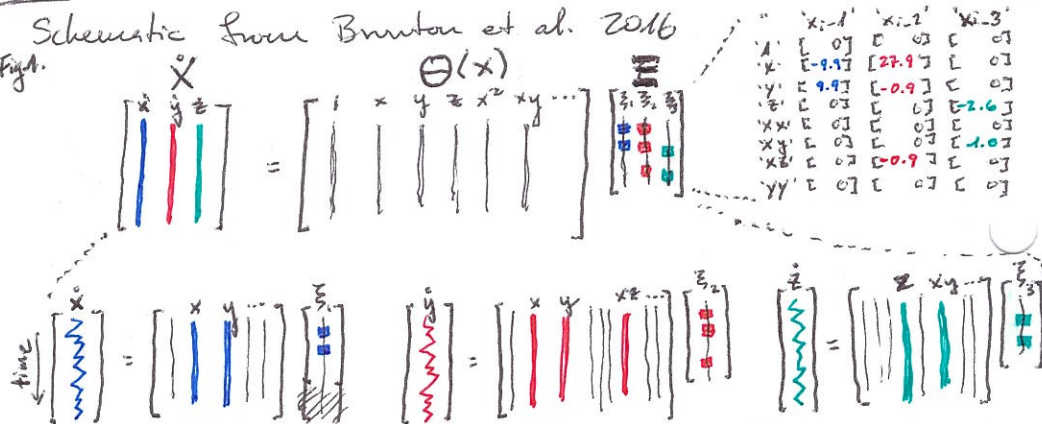 Schematic from Brunton et al. 2016
Fig 1.
Ẋ Θ(x) Ξ
ẋ ẏ ż = 1 x y z x² xy ... ξ₁ ξ₂ ξ₃
'xi_1' 'xi_2' 'xi_3'
'1' [ 0] [ 0] [ 0]
'x' [-9.9] [27.9] [ 0]
'y' [ 9.9] [-0.9] [ 0]
'z' [ 0] [ 0] [-2.6]
'xx' [ 0] [ 0] [ 0]
'xy' [ 0] [ 0] [ 1.0]
'xz' [ 0] [-0.9] [ 0]
'yy' [ 0] [ 0] [ 0]
time
ẋ = x y ... ξ₁
ẏ = x y xz ... ξ₂
ż = z xy ... ξ₃